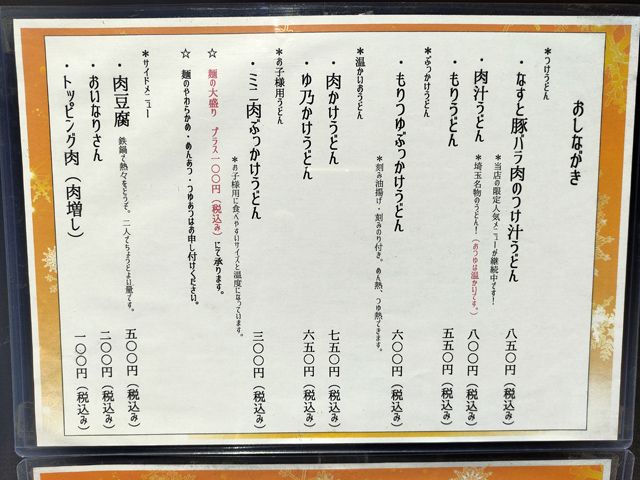 おしながき
*つけうどん
・なすと豚バラ肉のつけ汁うどん 八五〇円(税込み)
*当店の限定人気メニューが継続中です!
・肉汁うどん 八〇〇円(税込み)
*埼玉名物のうどん!(おつゆは温かいです。)
・もりうどん 五五〇円(税込み)
*ぶっかけうどん
・もりつゆぶっかけうどん 六〇〇円(税込み)
*刻み油揚げ・刻みのり付き。めん熱、つゆ熱できます。
*温かいおうどん
・肉かけうどん 七五〇円(税込み)
・ゆ乃かけうどん 六五〇円(税込み)
*お子様用うどん
・ミニ肉ぶっかけうどん 三〇〇円(税込み)
*お子様用に食べやすいサイズと温度になっています。
☆ 麺の大盛り プラス一〇〇円(税込み)にて承ります。
☆ 麺のやわらかめ・めんあつ・つゆあつはお申し付けください。
*サイドメニュー
・肉豆腐 鉄鍋で熱々をどうぞ。二人でちょうどよい量です。 五〇〇円(税込み)
・おいなりさん 二〇〇円(税込み)
・トッピング肉(肉増し) 一〇〇円(税込み)